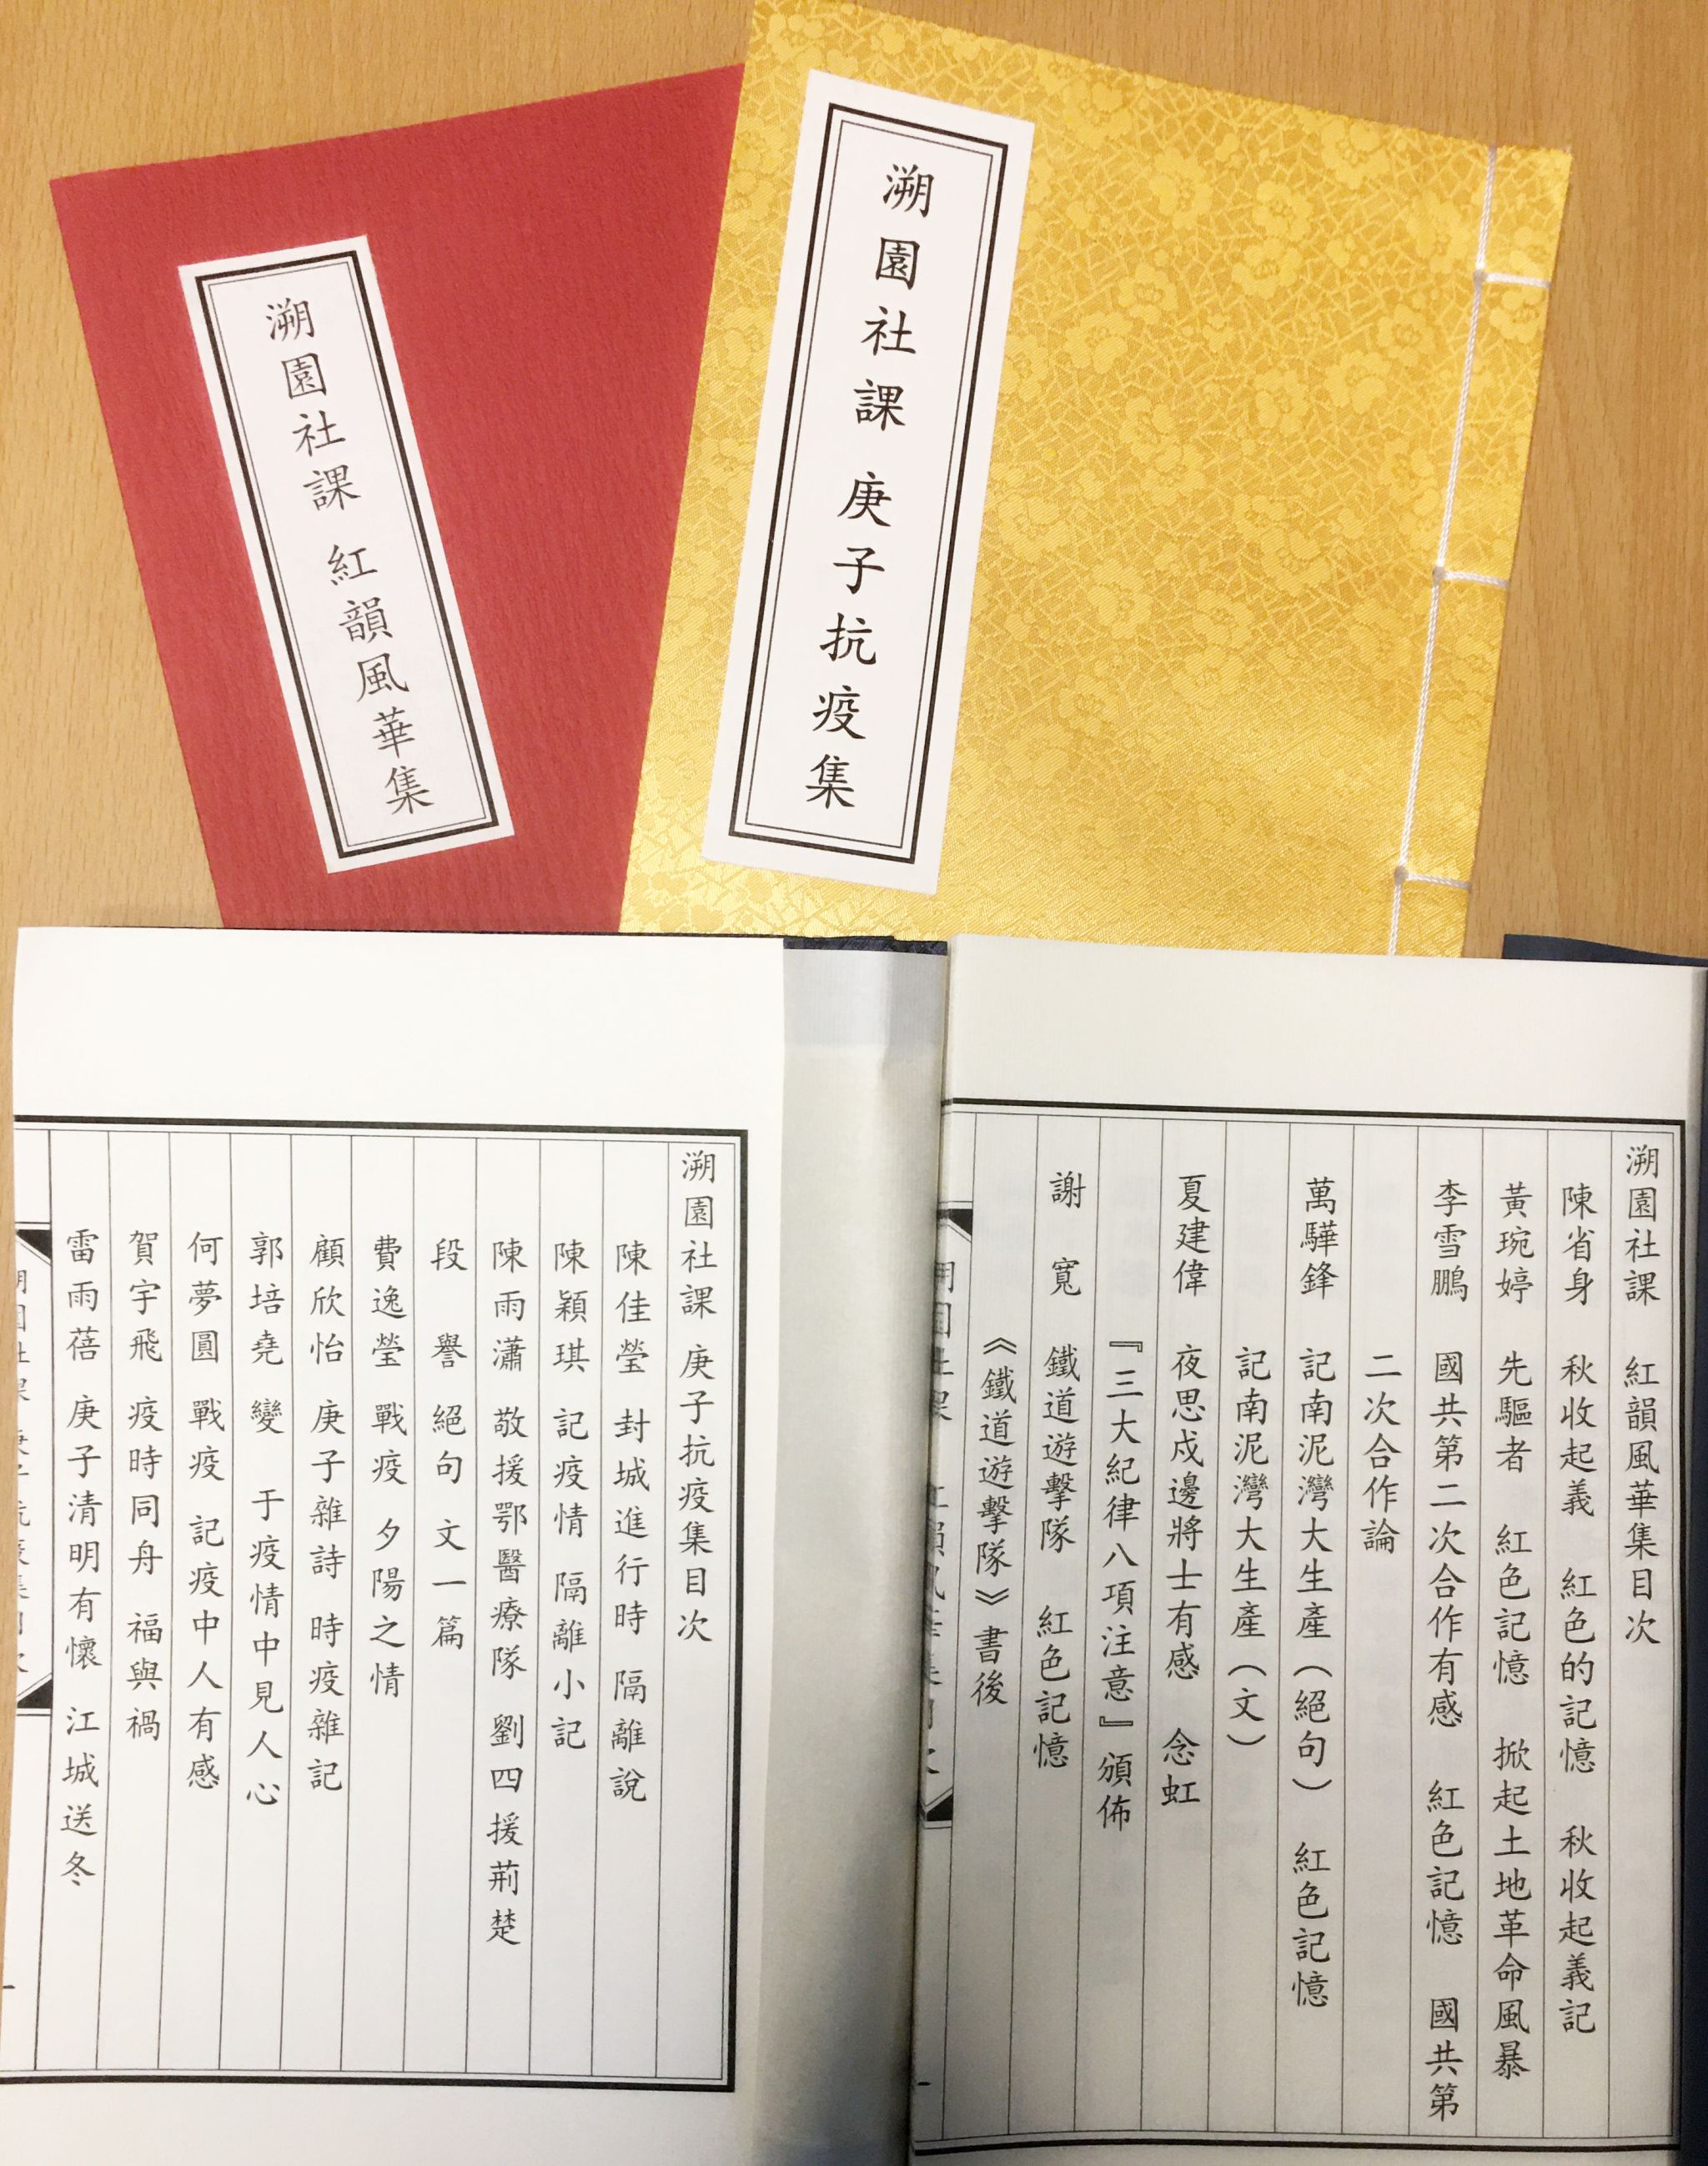 溯園社課 紅韻風華集
溯園社課 庚子抗疫集
溯園社課 紅韻風華集目次
陳省身 秋收起義 紅色的記憶 秋收起義記
黃琬婷 先驅者 紅色記憶 掀起土地革命風暴
李雪鵬 國共第二次合作有感 紅色記憶 國共第
二次合作論
萬驊鋒 記南泥灣大生產（絕句） 紅色記憶
記南泥灣大生產（文）
夏建偉 夜思戍邊將士有感 念虹
『三大紀律八項注意』頒佈
謝 寬 鐵道遊擊隊 紅色記憶
《鐵道遊擊隊》書後
溯園社課 庚子抗疫集目次
陳佳瑩 封城進行時 隔離說
陳穎琪 記疫情 隔離小記
陳雨瀟 敬援鄂醫療隊 劉四援荊楚
段 譽 絕句 文一篇
費逸瑩 戰疫 夕陽之情
顧欣怡 庚子雜詩 時疫雜記
郭培堯 變 于疫情中見人心
何夢圓 戰疫 記疫中人有感
賀宇飛 疫時同舟 福與禍
雷雨蓓 庚子清明有懷 江城送冬